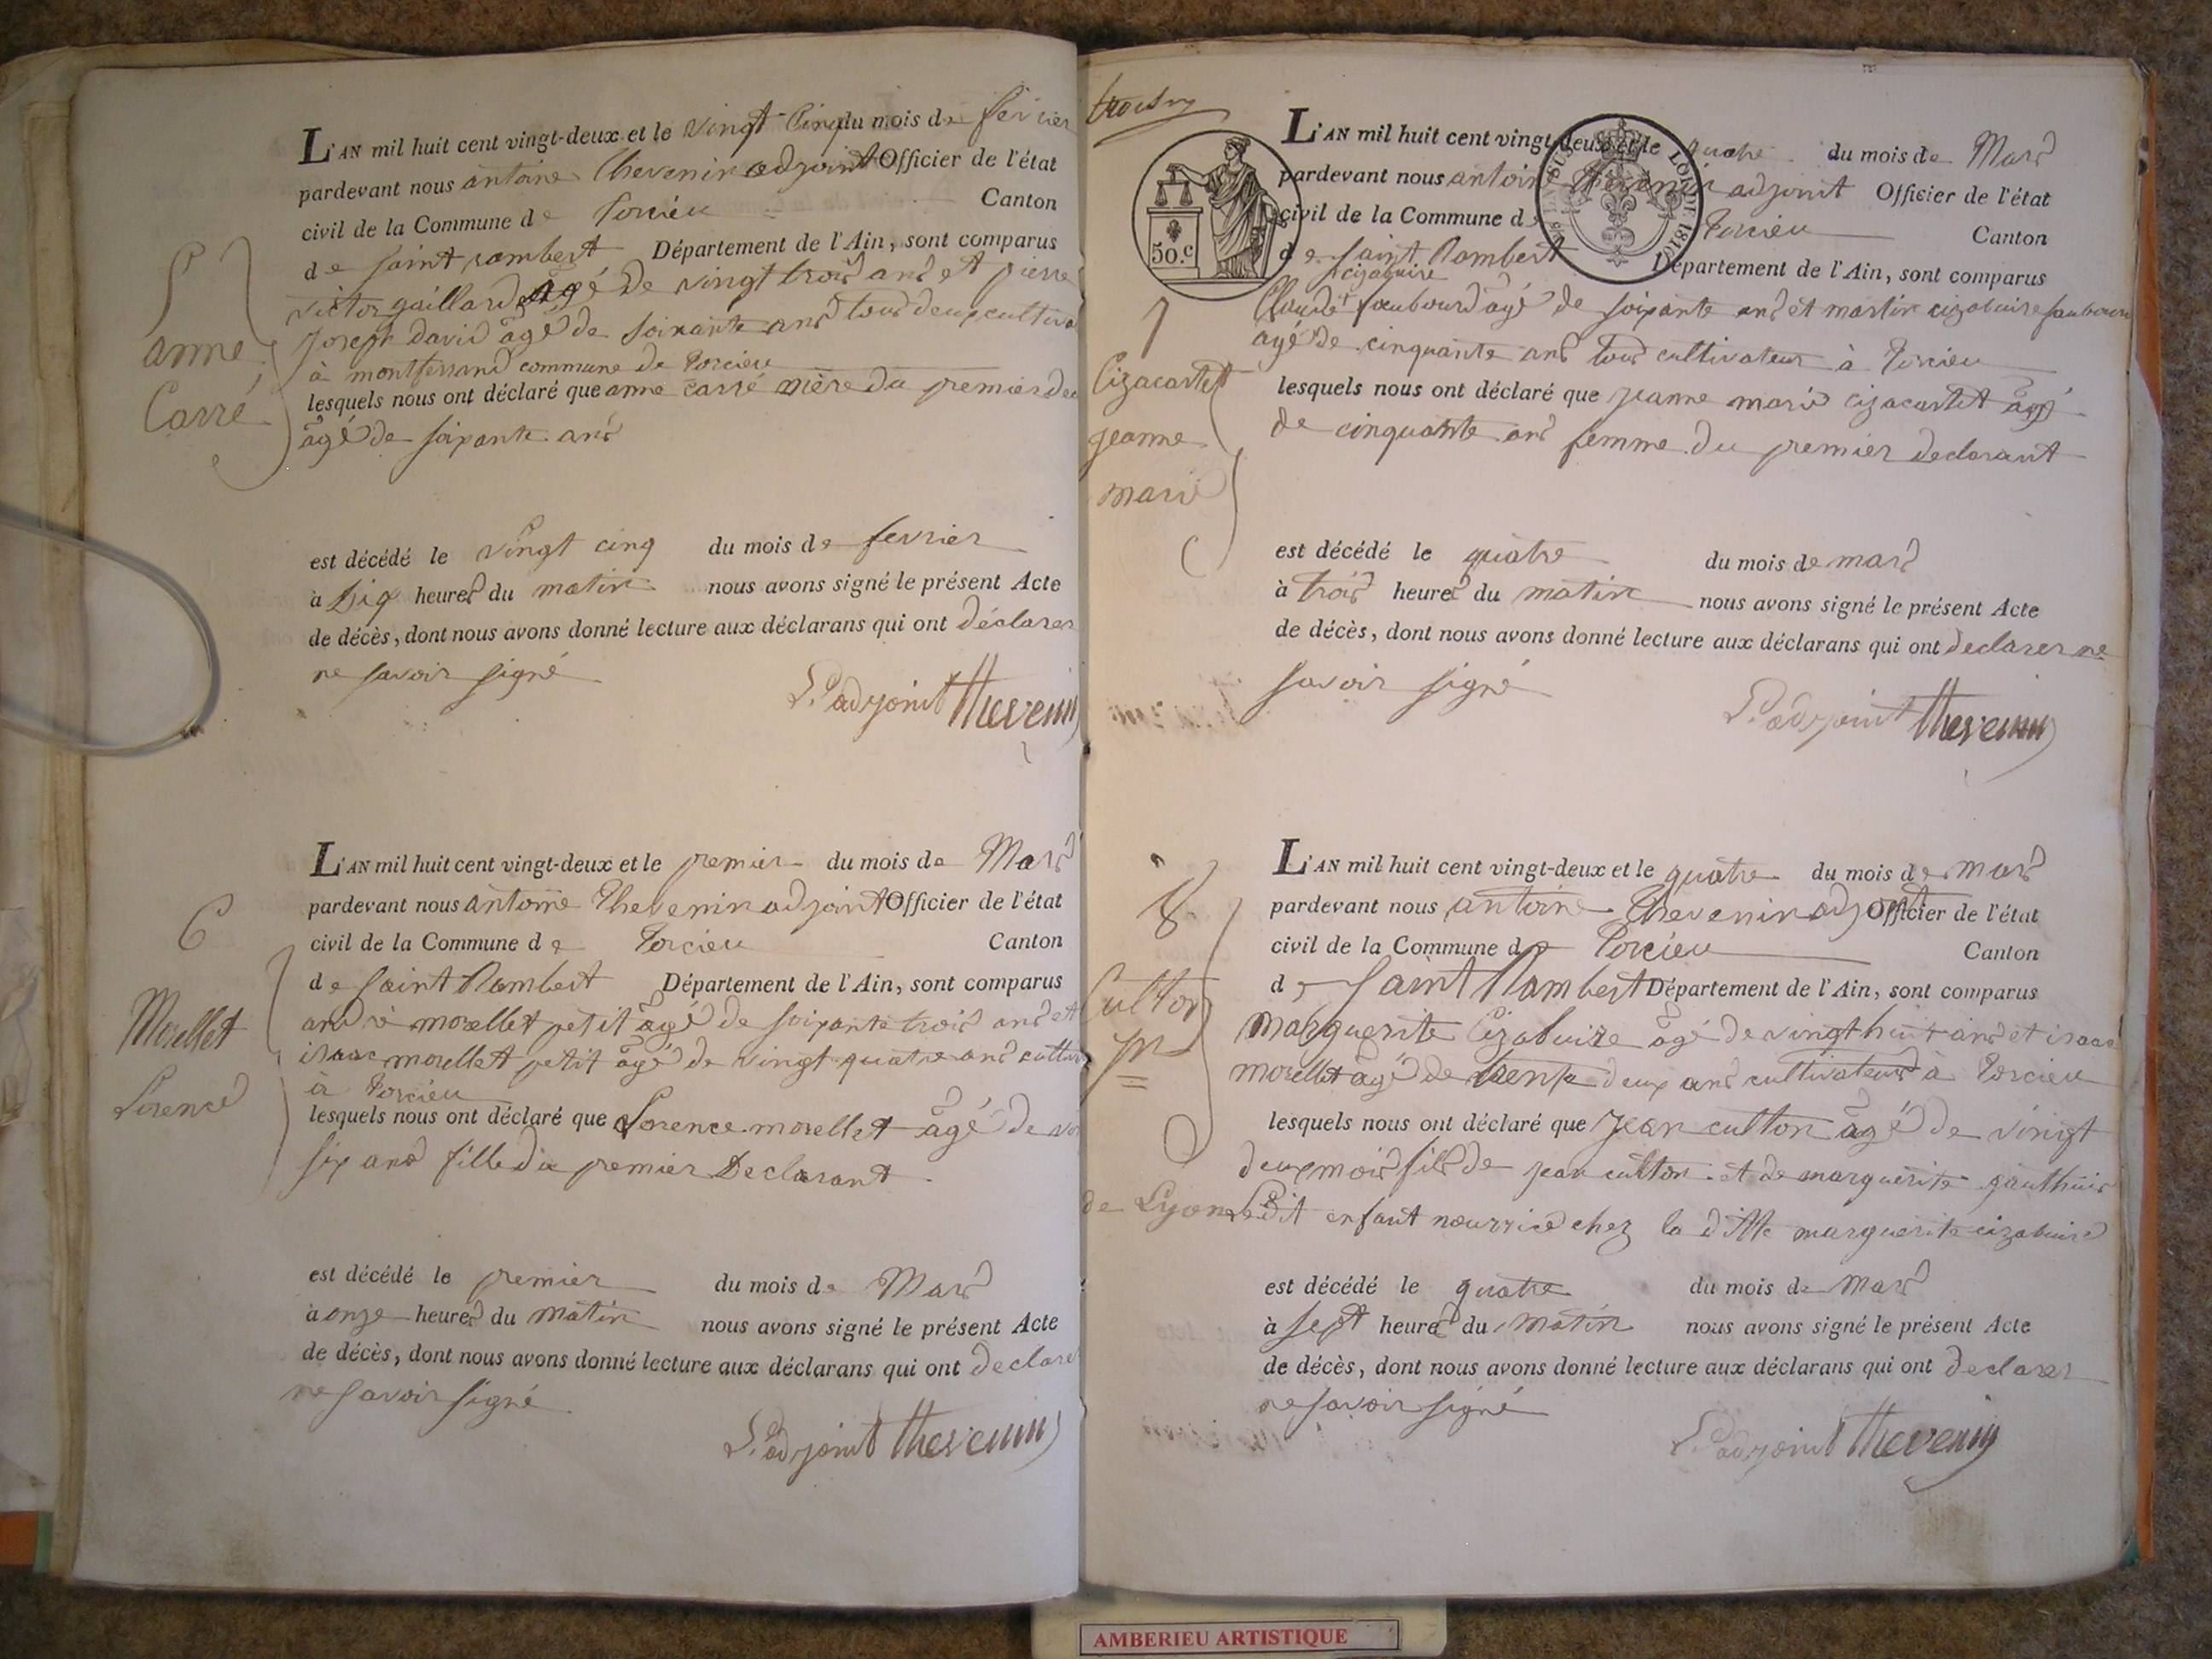 L'AN mil huit cent vingt-deux et le vingt Cinq du mois de fevrier
pardevant nous antoine Thevenin adjoint Officier de l'état
civil de la Commune de Torcieu Canton
de saint rambert Département de l'Ain, sont comparus
victor gaillard agé de vingt trois ans et pierre
joseph david agé de soixante ans tous deux cultiva
à montferrand commune de Torcieu
lesquels nous ont déclaré que anne carré mère du premier de
agé de soixante ans
5
anne
Carré
est décédé le vingt cinq du mois de fevrier
à Dix heures du matin nous avons signé le présent Acte
de décès, dont nous avons donné lecture aux déclarans qui ont déclarer
ne savoir signé
L'adjoint thevenin
L'AN mil huit cent vingt-deux et le premier du mois de Mars
pardevant nous antoine Thevenin adjoint Officier de l'état
civil de la Commune de Torcieu Canton
de Saint Rambert Département de l'Ain, sont comparus
andré morellet petit agé de soixante trois ans et
isaac morellet petit agé de vingt quatre ans cultiv
à Torcieu
lesquels nous ont déclaré que Lorence morellet agé de
six ans fille du premier Declarant
6
Morellet
Lorence
est décédé le premier du mois de Mars
à onze heures du matin nous avons signé le présent Acte
de décès, dont nous avons donné lecture aux déclarans qui ont declare
ne savoir signé
L'adjoint thevenin
50.c
LOI DE 1816
L'AN mil huit cent vingt-deux et le quatre du mois de Mars
pardevant nous antoine Thevenin adjoint Officier de l'état
civil de la Commune de Torcieu Canton
de Saint Rambert Département de l'Ain, sont comparus
cizabuire
Claude faubourd agé de soixante ans et martin cizabuire faubourd
agé de cinquante ans tous cultivateur à Torcieu
lesquels nous ont déclaré que jeanne marie cizacartet agé
de cinquante ans femme du premier declarant
7
Cizacartet
jeanne
marie
est décédé le quatre du mois de mars
à trois heures du matin nous avons signé le présent Acte
de décès, dont nous avons donné lecture aux déclarans qui ont declarer ne
savoir signé
L'adjoint thevenin
L'AN mil huit cent vingt-deux et le quatre du mois de mars
pardevant nous antoine Thevenin adjoint Officier de l'état
civil de la Commune de Torcieu Canton
de Saint Rambert Département de l'Ain, sont comparus
marguerite Cizabuire agé de vingt huit ans et isaac
morellet agé de trente deux ans cultivateurs à Torcieu
lesquels nous ont déclaré que Jean culton agé de vingt
deux mois fils de jean culton et de marguerite
de Lyon Ledit enfant nourrice chez la ditte marguerite cizabuire
8
Culton
est décédé le quatre du mois de mars
à sept heures du matin nous avons signé le présent Acte
de décès, dont nous avons donné lecture aux déclarans qui ont declarer
ne savoir signé
L'adjoint thevenin
AMBERIEU ARTISTIQUE